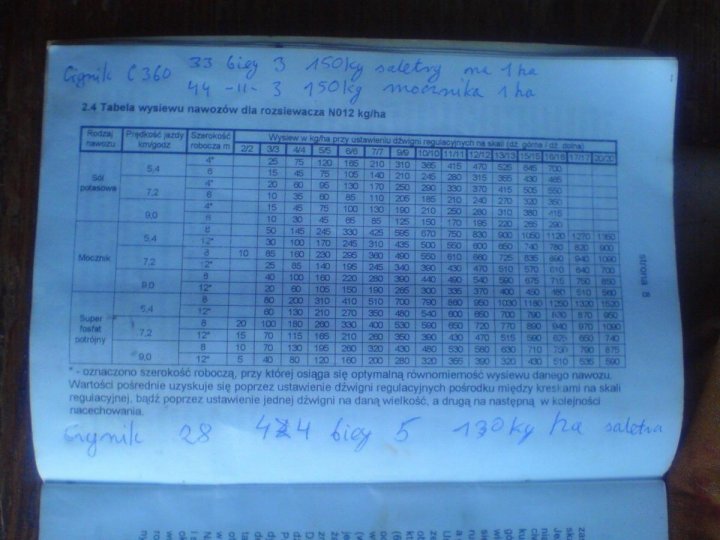 Ciągnik C 360 33 bieg 3 150kg saletry na 1 ha
44 -11- 3 150kg mocznika 1 ha
2.4 Tabela wysiewu nawozów dla rozsiewacza N012 kg/ha
Rodzaj nawozu Prędkość jazdy km/godz Szerokość robocza m Wysiew w kg/ha przy ustawieniu dźwigni regulacyjnych na skali (dź. górna / dź. dolna)
2/2 3/3 4/4 5/5 6/6 7/7 9/9 10/10 11/11 12/12 13/13 15/15 16/16 17/17 20/20
Sól potasowa 5,4 4* 25 75 120 165 210 310 365 415 470 525 645 700
6 15 45 75 105 140 210 245 280 315 365 430 465
7,2 4* 20 60 95 130 170 250 290 330 370 415 505 550
6 10 35 60 85 110 205 185 210 240 270 320 350
9,0 4* 15 45 75 100 130 190 210 250 280 310 380 415
6 10 30 45 65 85 125 150 170 195 220 265 290
Mocznik 5,4 8 50 145 245 330 425 595 670 750 830 900 1050 1120 1270
12* 30 100 170 245 310 435 500 550 600 650 740 780 820 900
7,2 8 10 85 160 230 295 360 490 550 610 660 725 835 890 940 1090
12* 25 85 140 195 245 340 390 430 470 510 570 610 640 700
9,0 8 40 100 160 220 280 390 440 490 540 590 675 715 750 850
12* 20 60 105 150 190 265 300 335 370 400 450 480 510 560
Super fosfat potrójny 5,4 8 80 200 310 410 510 700 790 860 950 1030 1180 1250 1320 1520
12* 60 130 210 270 350 480 540 600 650 700 790 830 870 950
7,2 8 20 100 180 260 330 400 530 590 650 720 770 890 940 970 1090
12* 15 70 115 165 210 260 350 390 430 470 515 590 625 650 740
9,0 8 10 70 130 195 260 320 430 480 530 580 630 710 750 790 875
12* 5 40 80 120 160 200 280 320 355 390 320 430 510 535 590
* - oznaczono szerokość roboczą, przy której osiąga się optymalną równomierność wysiewu danego nawozu.
Wartości pośrednie uzyskuje się poprzez ustawienie dźwigni regulacyjnych pośrodku między kreskami na skali
regulacyjnej, bądź poprzez ustawienie jednej dźwigni na daną wielkość, a drugą na następną w kolejności
nacechowania.
strona 8
28 44 bieg 5 130kg ha saletra